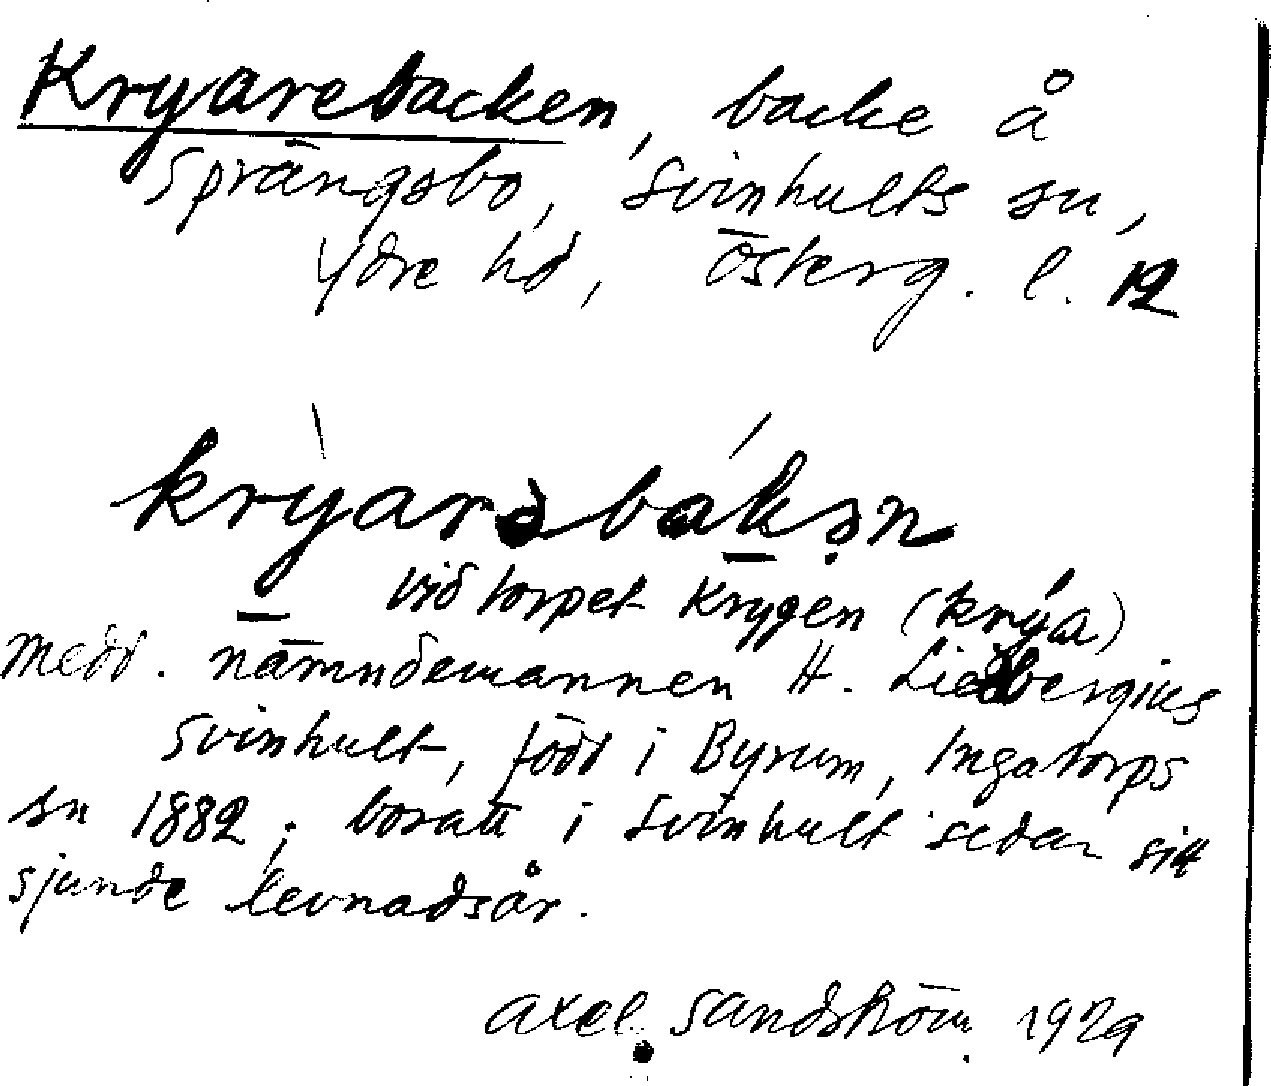 Kryarebacken, backe å
Sprängsbo, Svinhults sn,
Ydre hd, Österg. l. 12
krỳarəbákən
vid torpet Krygen (krýa)
Medd. nämndemannen H.
Svinhult, född i Byrum, Ingatorps
sn 1882; bosatt i Svinhult sedan sitt
sjunde levnadsår.
Axel Sandström 1929